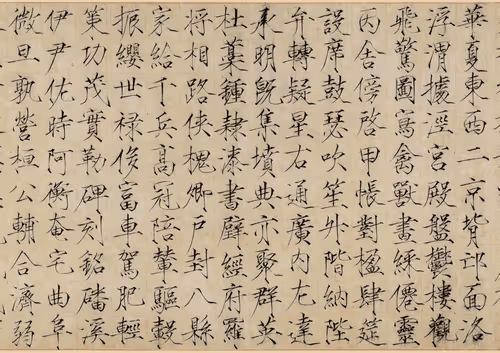 華夏東西二京背邙面洛
浮渭據涇宮殿盤鬱樓觀
飛驚圖寫禽獸畫綵僊靈
丙舍傍啓甲帳對楹肆筵
設席鼓瑟吹笙外階納陛
弁轉疑星右通廣內左達
承明既集墳典亦聚群英
杜藁鍾隸漆書壁經府羅
將相路俠槐卿戶封八縣
家給千兵高冠陪輦驅轂
振纓世祿侈富車駕肥輕
策功茂實勒碑刻銘磻溪
伊尹佐時阿衡奄宅曲阜
微旦孰營桓公輔合濟弱